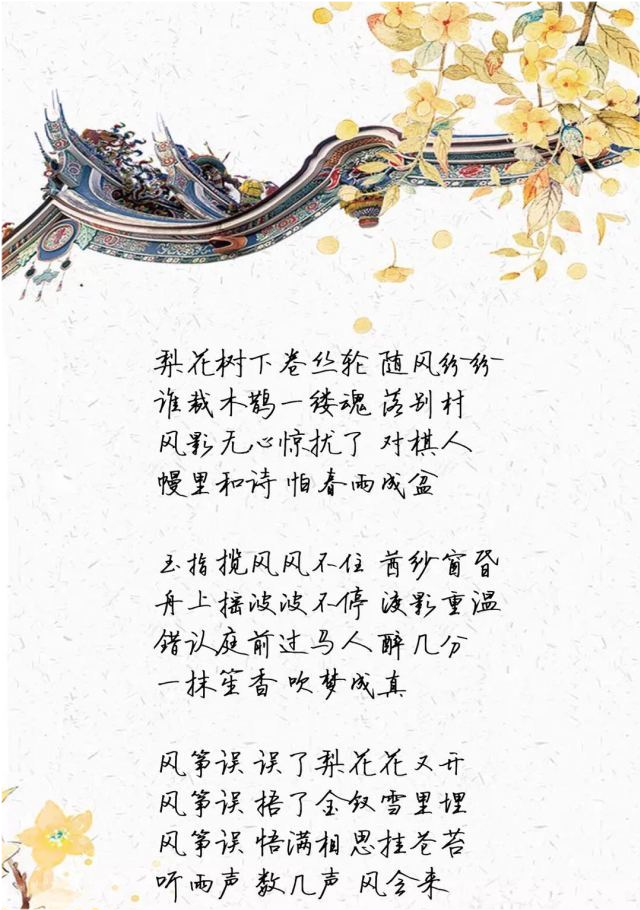 梨花树下卷丝轮 随风纷纷
谁裁木鹊一缕魂 落别村
风影无心惊扰了 对棋人
幔里和诗 怕春雨成盆
玉指揽风风不住 茜纱窗昏
舟上摇波波不停 渡影重温
错认庭前过马人醉几分
一抹笙香 吹梦成真
风筝误 误了梨花花又开
风筝误 捂了金钗雪里埋
风筝误 悟满相思挂苍苔
听雨声 数几声 风会来